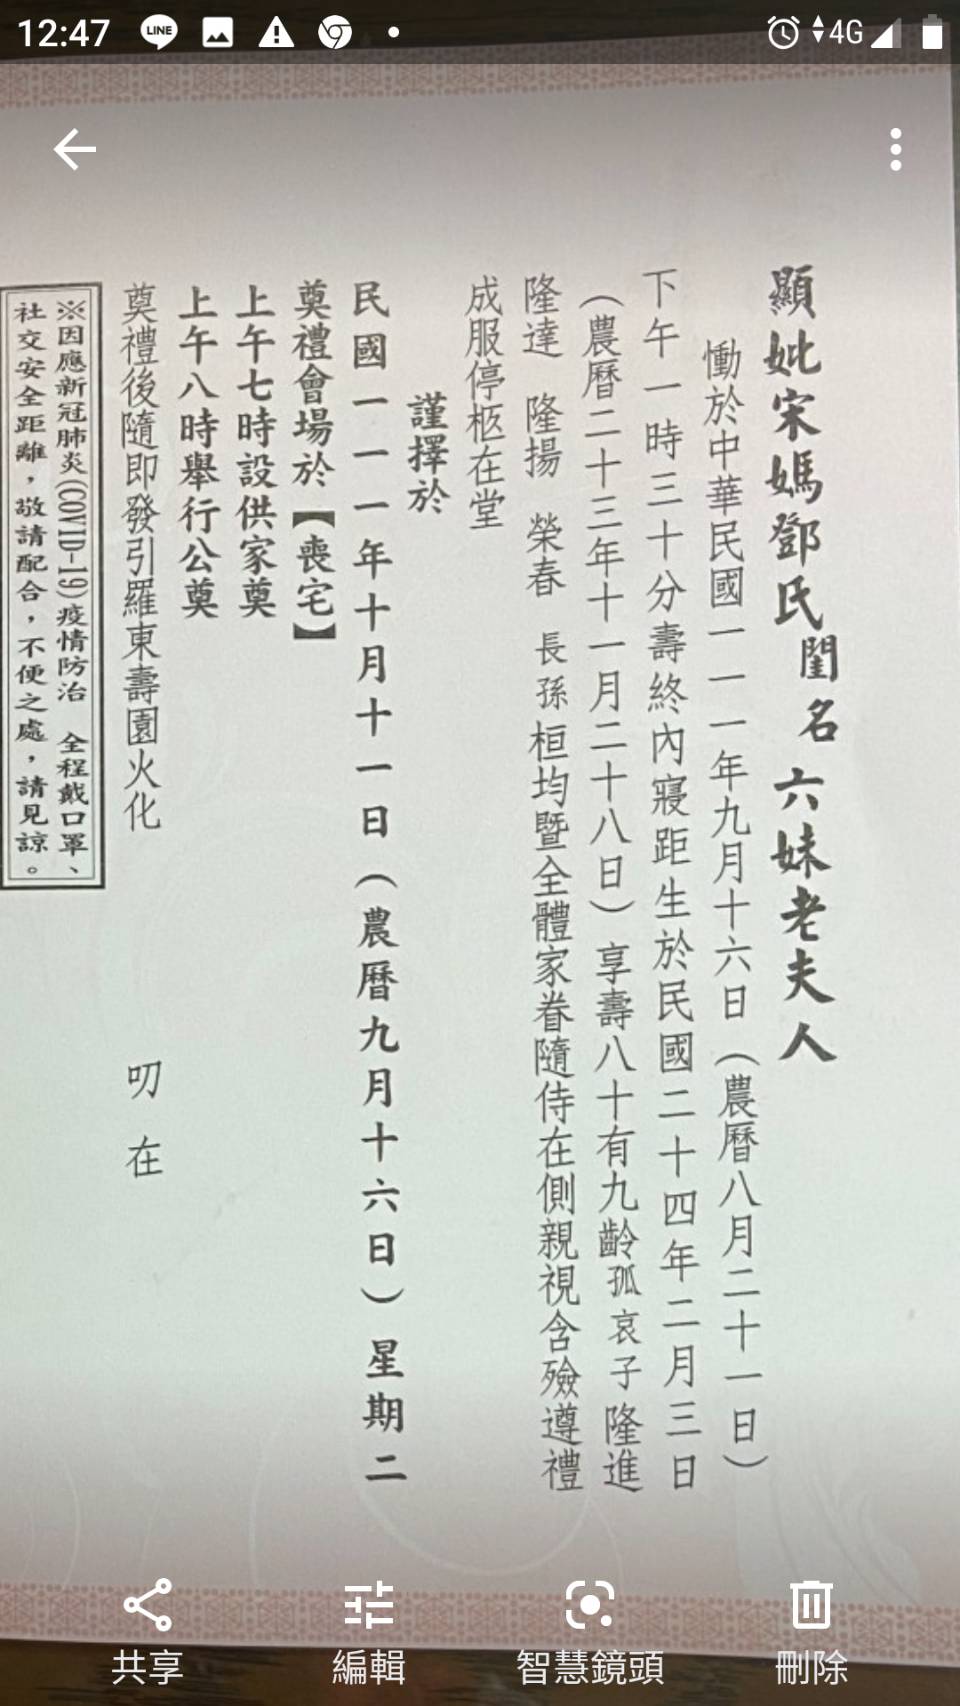 12:47
LINE
4G
顯妣宋媽鄧氏閨名六妹老夫人
慟於中華民國一一一年九月十六日（農曆八月二十一日）
下午一時三十分壽終內寢距生於民國二十四年二月三日
（農曆二十三年十一月二十八日）享壽八十有九齡孤哀子隆進
隆達 隆揚 榮春 長孫桓均暨全體家眷隨侍在側親視含殮遵禮
成服停柩在堂
謹擇於
民國一一一年十月十一日（農曆九月十六日）星期二
奠禮會場於【喪宅】
上午七時設供家奠
上午八時舉行公奠
奠禮後隨即發引羅東壽園火化
叨在
※因應新冠肺炎(COVID-19)疫情防治 全程戴口罩、
社交安全距離，敬請配合，不便之處，請見諒。
共享
編輯
智慧鏡頭
刪除